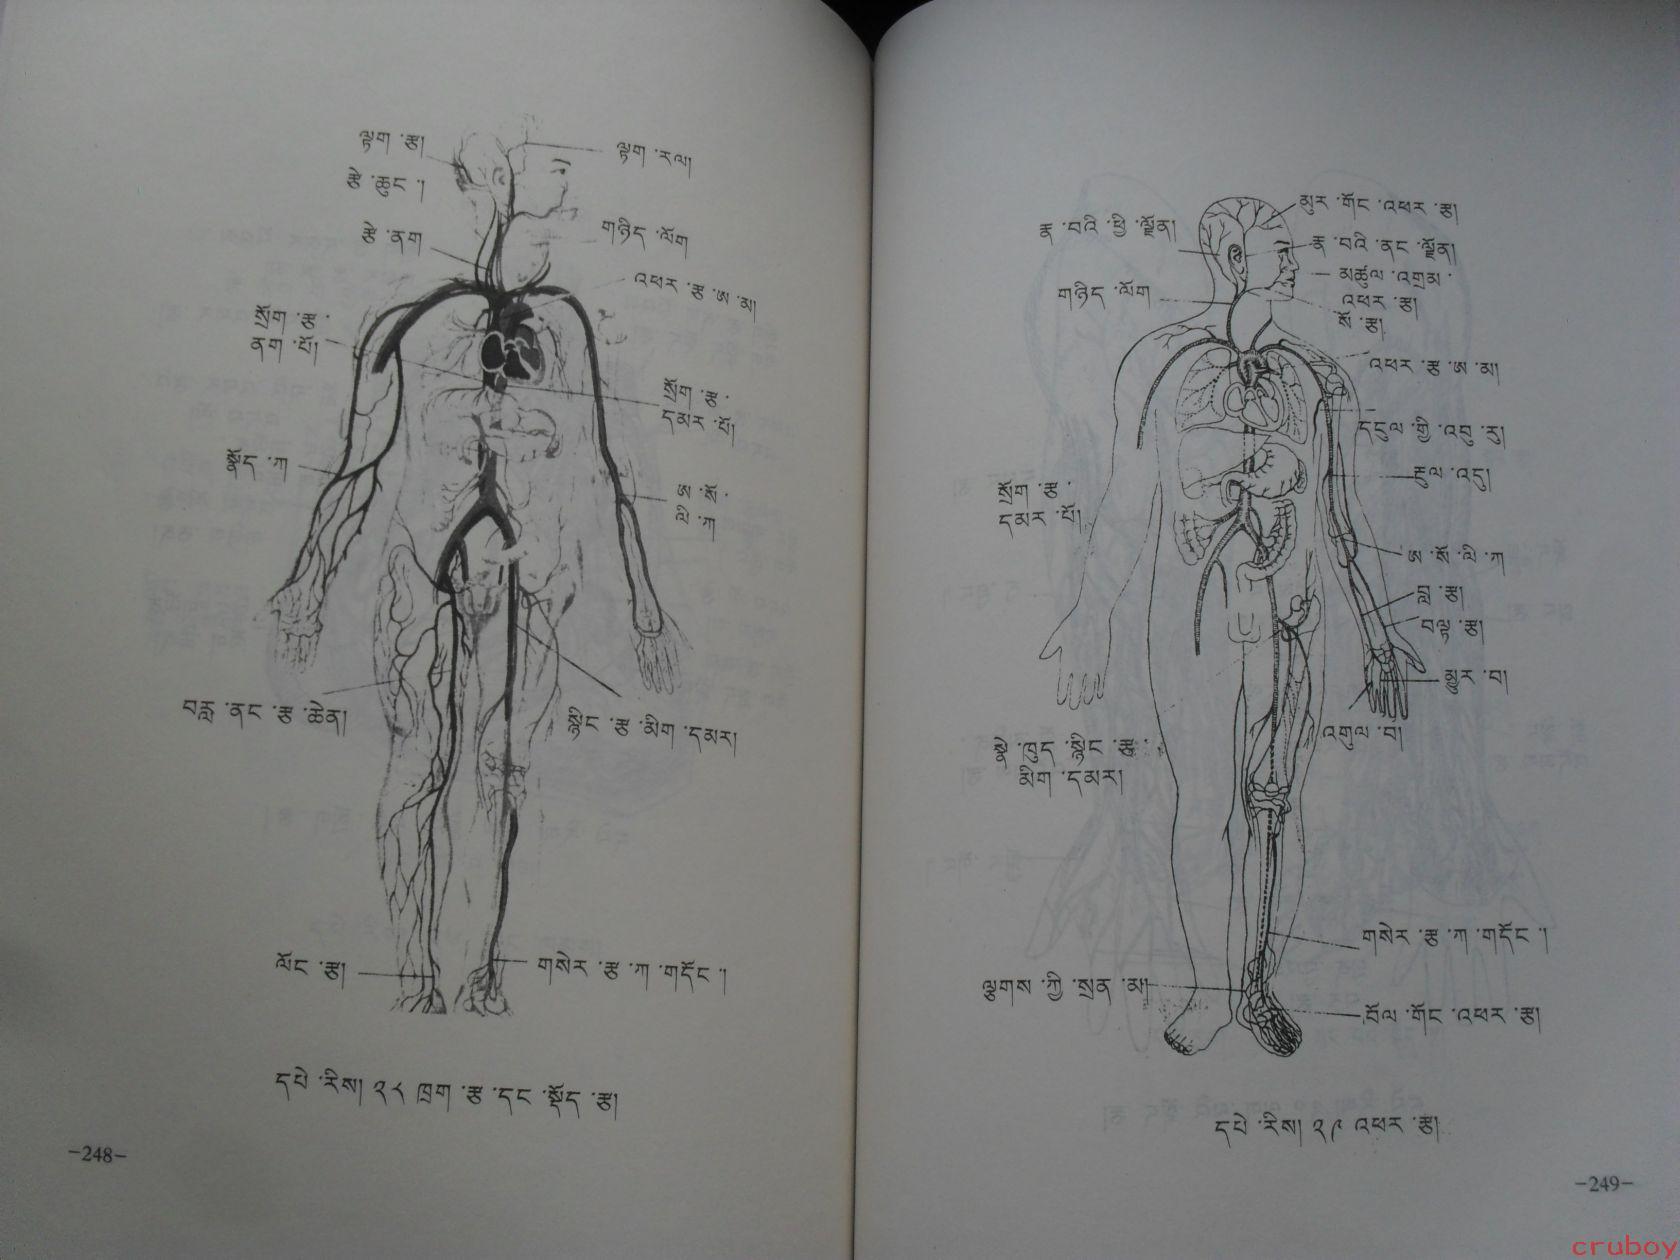 ལྟག་རྩ།
ལྟག་རལ།
རྩེ་ཆུང་།
རྩེ་ནག
གཉིད་ལོག
འཕར་རྩ་ཨ་མ།
སྲོག་རྩ་
ནག་པོ།
སྲོག་རྩ་
དམར་པོ།
སྣོད་ཀ
ཨ་སོ་
ལི་ཀ
བརླ་ནང་རྩ་ཆེན།
སྙིང་རྩ་མིག་དམར།
ལོང་རྩ།
གསེར་རྩ་ཀ་གདོང་།
དཔེ་རིས། ༢༨ ཁྲག་རྩ་དང་སྡོད་རྩ།
-248-
མུར་གོང་འཕར་རྩ།
རྣ་བའི་ཕྱི་ལྗོན།
རྣ་བའི་ནང་ལྗོན།
མཚུལ་འགྲམ་
འཕར་རྩ།
གཉིད་ལོག
སོ་རྩ།
འཕར་རྩ་ཨ་མ།
དངུལ་གྱི་འབུ་རུ།
རྔུལ་འདུ།
སྲོག་རྩ་
དམར་པོ།
ཨ་སོ་ལི་ཀ
བླ་རྩ།
བལྟ་རྩ།
མྱུར་བ།
འགུལ་བ།
སྣེ་ཁུད་སྙིང་རྩ་
མིག་དམར།
གསེར་རྩ་ཀ་གདོང་།
ལྕགས་ཀྱི་སྲན་མ།
བོལ་གོང་འཕར་རྩ།
དཔེ་རིས། ༢༩ འཕར་རྩ།
-249-
cruboy